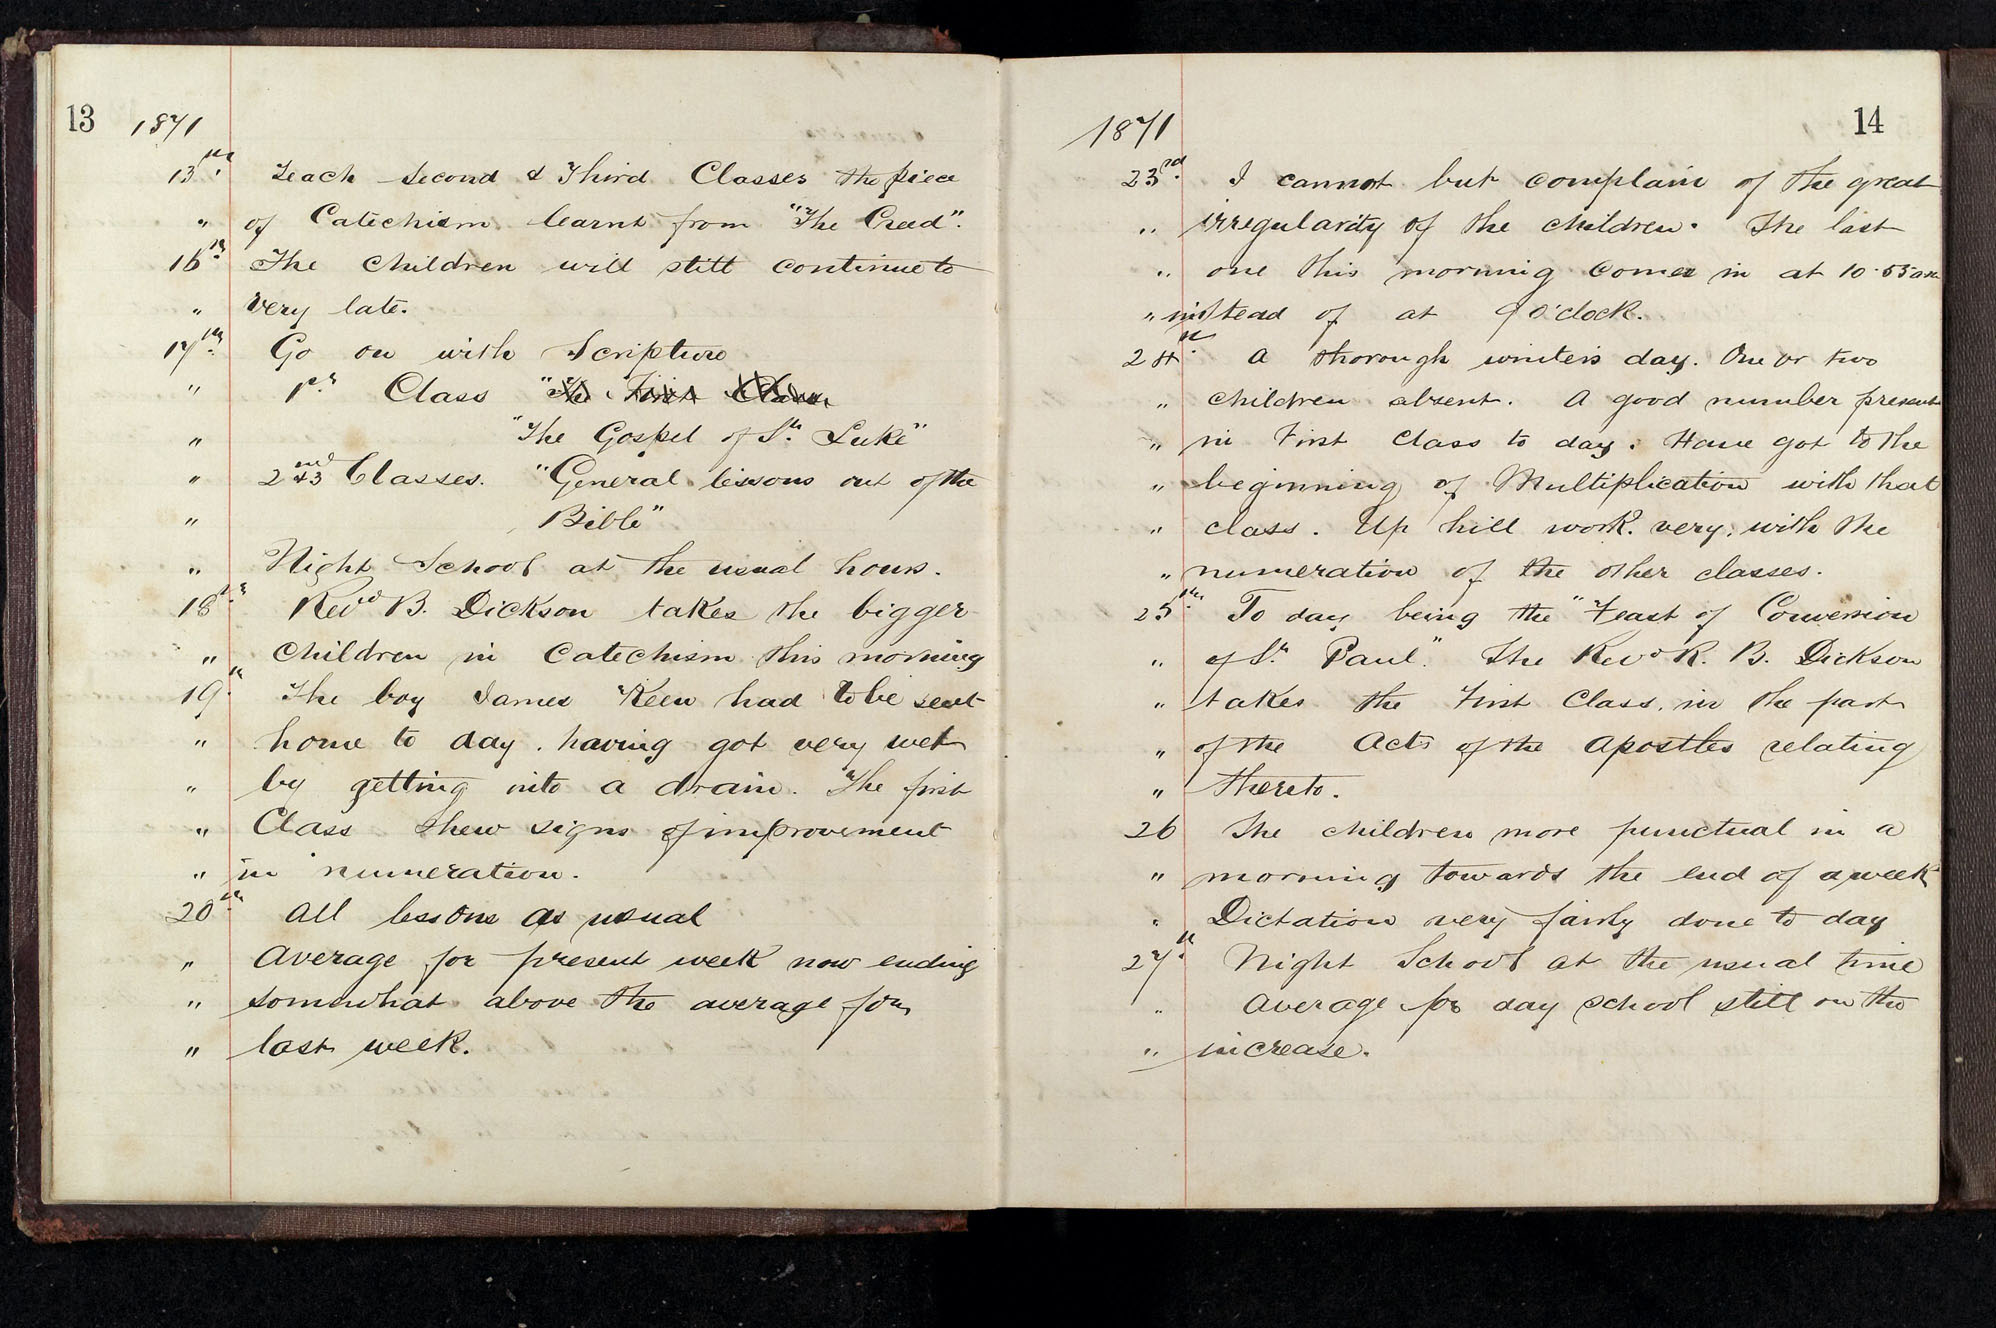 13 1871
13th Teach Second & Third Classes the piece
" of Catechism learnt from "The Creed".
16th The Children will still continue to
" very late.
17th Go on with Scripture
" 1st Class "The First Class
" "The Gospel of St. Luke"
" 2nd & 3 Classes. "General lessons out of the
" Bible"
" Night School at the usual hours.
18th Revd B. Dickson takes the bigger
" Children in Catechism this morning
19th The boy James Keen had to be sent
" home to day. having got very wet
" by getting into a drain. The first
" Class shew signs of improvement
" in numeration.
20th All lessons as usual
" Average for present week now ending
" somewhat above the average for
" last week.
1871 14
23rd I cannot but complain of the great
" irregularity of the children. The last
" one this morning comes in at 10.55 am
" instead of at 9 o'clock.
24th A thorough winter's day. One or two
" children absent. A good number present
" in First Class to day. Have got to the
" beginning of Multiplication with that
" class. Up hill work. very, with the
" numeration of the other classes.
25th To day being the "Feast of Conversion
" of St. Paul". The Revd R. B. Dickson
" takes the First Class, in the part
" of the Acts of the Apostles relating
" thereto.
26 The children more punctual in a
" morning towards the end of a week
" Dictation very fairly done to day
27th Night School at the usual time
" Average for day school still on the
" increase.